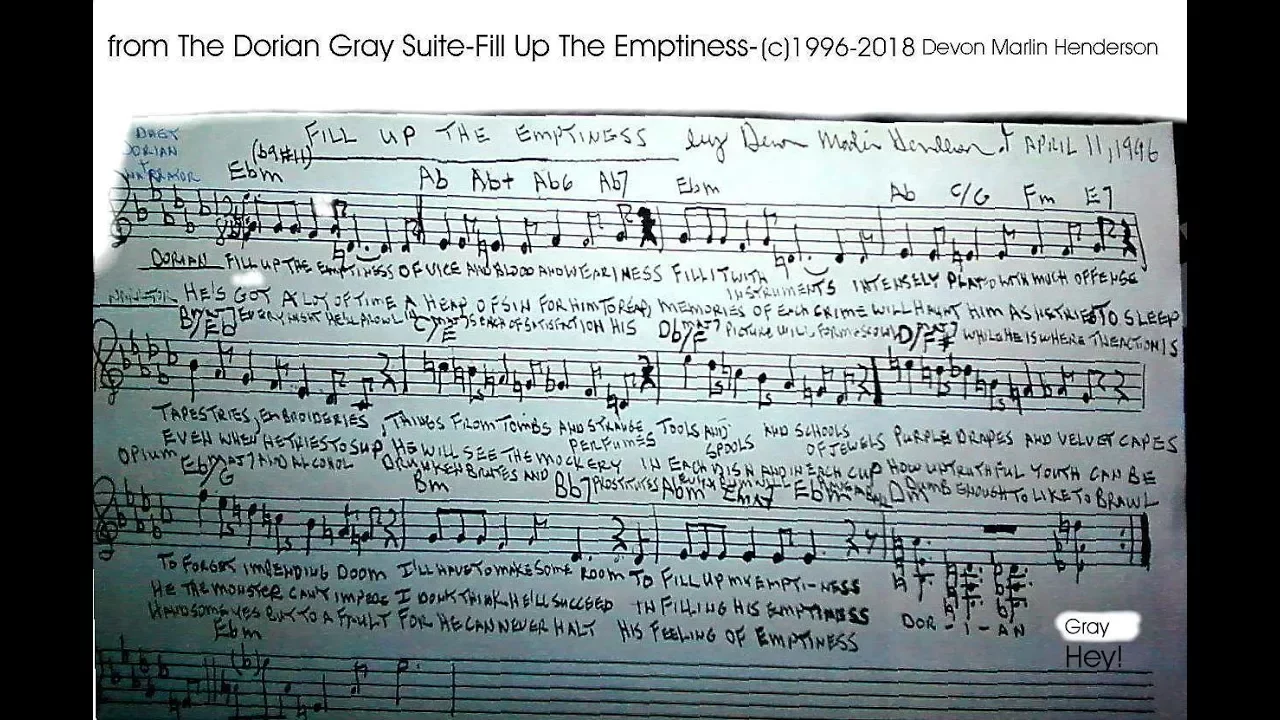 from The Dorian Gray Suite-Fill Up The Emptiness-(c)1996-2018 Devon Marlin Henderson
DUET
DORIAN
+
NARRATOR
FILL UP THE EMPTINESS by Devon Marlin Henderson APRIL 11, 1996
Ebm (b9#11) Ab Ab+ Ab6 Ab7 Ebm Ab C/G Fm E7
DORIAN FILL UP THE EMPTINESS OF VICE AND BLOOD AND WEARINESS FILL IT WITH INSTRUMENTS INTENSELY PLAYED WITH MUCH OFFENSE
NARRATOR HE'S GOT A LOT OF TIME A HEAP OF SIN FOR HIM TO REAP, MEMORIES OF EACH CRIME WILL HAUNT HIM AS HE TRIES TO SLEEP
EVERY NIGHT HE'LL PROWL IN OF SATISFACTION HIS PICTURE WILL FORM A SCOWL WHILE HE IS WHERE THE ACTION IS
TAPESTRIES, EMBROIDERIES, THINGS FROM TOMBS AND STRANGE PERFUMES TOOLS AND SPOOLS AND SCHOOLS OF JEWELS PURPLE DRAPES AND VELVET CAPES
EVEN WHEN HE TRIES TO SUP HE WILL SEE THE MOCKERY IN EACH DISH AND IN EACH CUP HOW UNTRUTHFUL YOUTH CAN BE
OPIUM AND ALCOHOL DRUNKEN BRUTES AND PROSTITUTES DUMB ENOUGH TO LIKE TO BRAWL
Bm Bb7 Abm Ebm Dm
TO FORGET IMPENDING DOOM I'LL HAVE TO MAKE SOME ROOM TO FILL UP MY EMPTI-NESS
HE THE MONSTER CAN'T IMPEDE I DON'T THINK HE'LL SUCCEED IN FILLING HIS EMPTINESS
HANDSOME YES BUT TO A FAULT FOR HE CAN NEVER HALT HIS FEELING OF EMPTINESS
DOR - I - AN
Gray
Hey!
Ebm